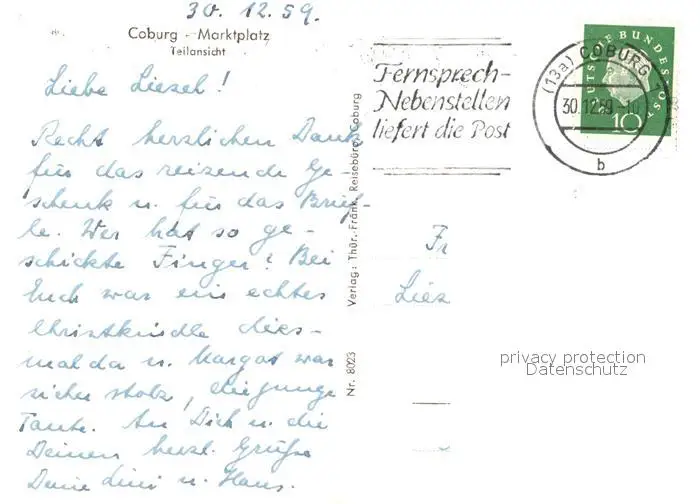 30. 12. 59.
Coburg - Marktplatz
Teilansicht
Liebe Liesel!
Recht herzlichen Dank
für das reizende Ge-
schenk u. für das Brief-
le. Wer hat so ge-
schickte Finger? Bei
Euch war ein echtes
Christkindle dies-
mal da u. Margot war
sicher stolz, die junge
Tante. An Dich u. die
Deinen herzl. Grüße
Deine Lini u. Hans.
Verlag: Thür.-Fränk. Reisebüro, Coburg
Nr. 8023
Fernsprech-
Nebenstellen
liefert die Post
(13a) COBURG 1
30.12.59-10
b
DEUTSCHE BUNDESPOST
10
Fr
Lies
privacy protection
Datenschutz